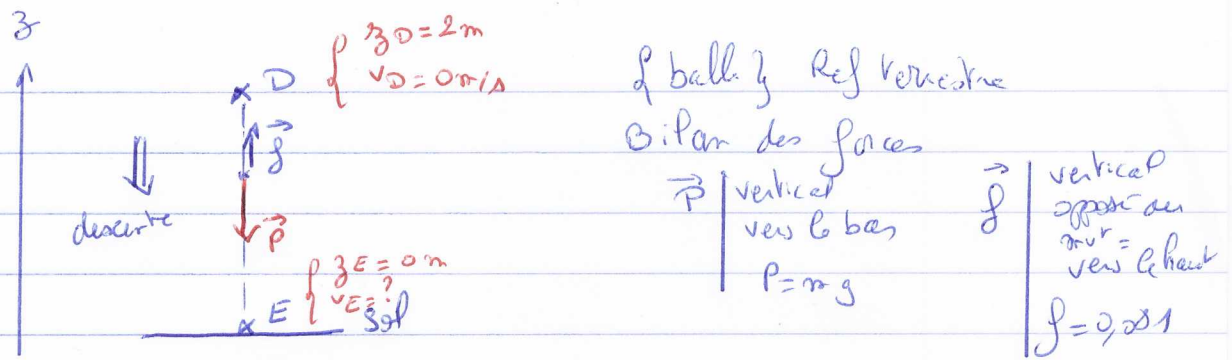 z
D { zD = 2 m
vD = 0 m/s
f
descente
P
{ zE = 0 m
vE = ?
E sol
{ balle } Ref terrestre
Bilan des forces
P | vertical
vers le bas
P = mg
f | vertical
opposé au
mvt =
vers le haut